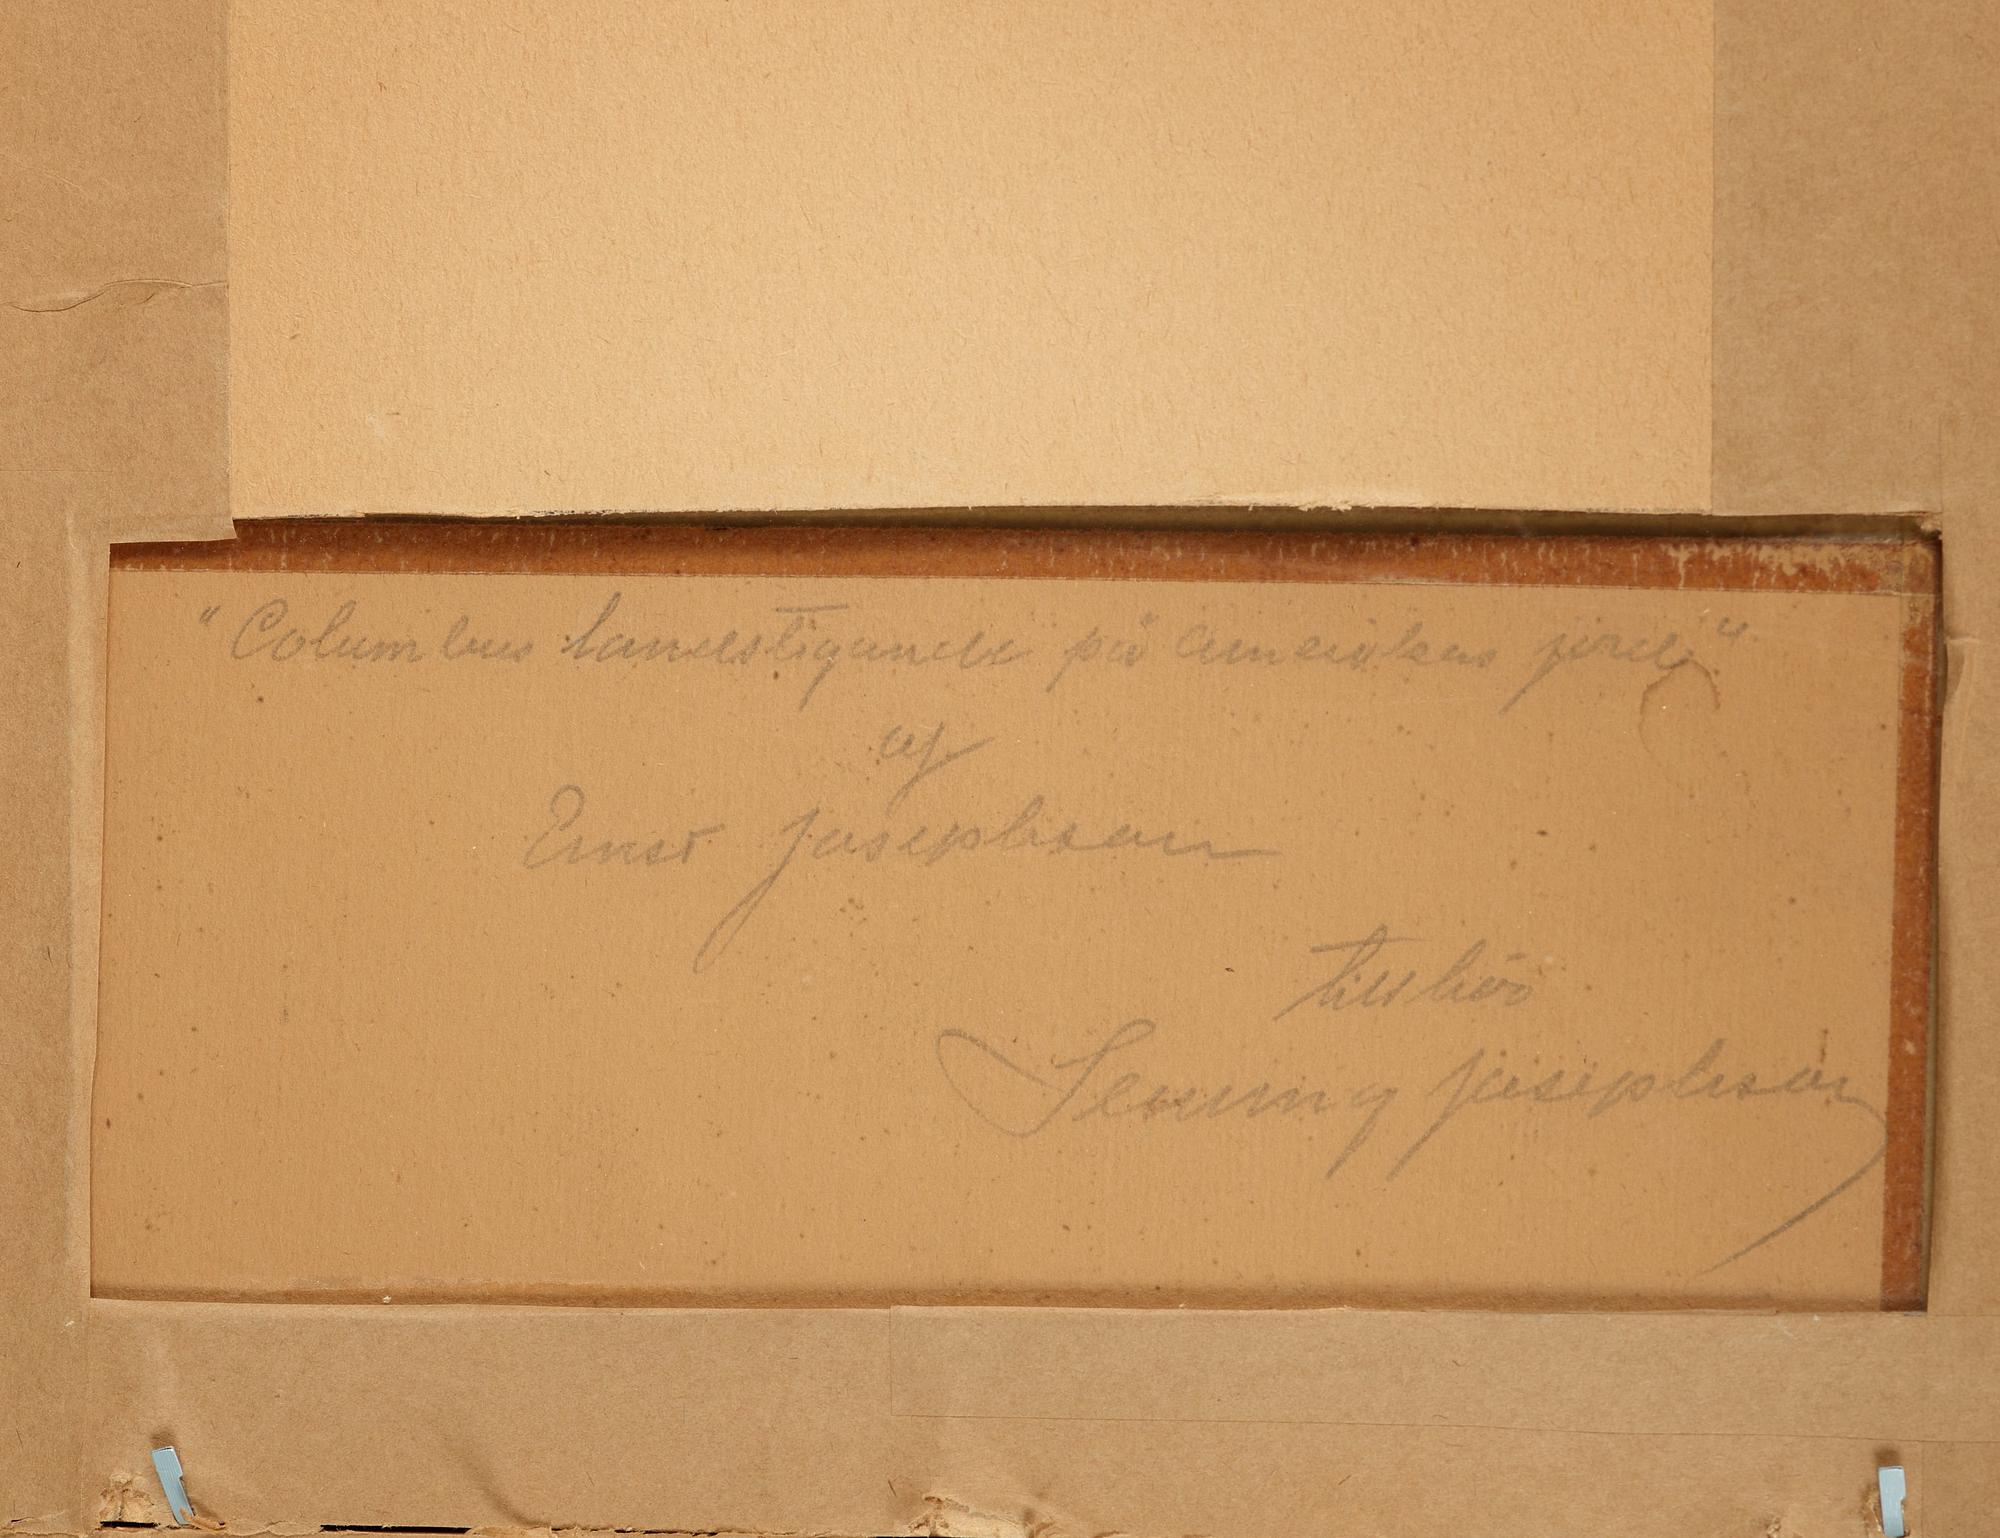 "Columbus landstigande på Amerikas jord"
af
Ernst Josephson
tillhör
Josephson